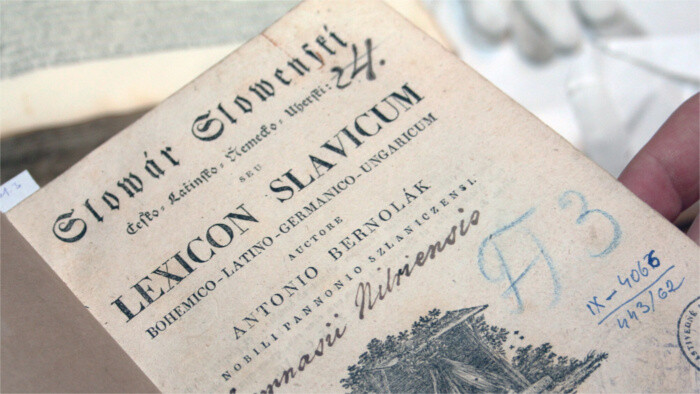 Slowár Slowenskí
Česko-Latinsko-Ňemecko-Uherskí:
24.
SEU
LEXICON SLAVICUM
BOHEMICO-LATINO-GERMANICO-UNGARICUM
AUCTORE
ANTONIO BERNOLÁK
NOBILI PANNONIO SZLANICZENSI.
Gymnasii Nitriensis
3
IX-4066
443/62